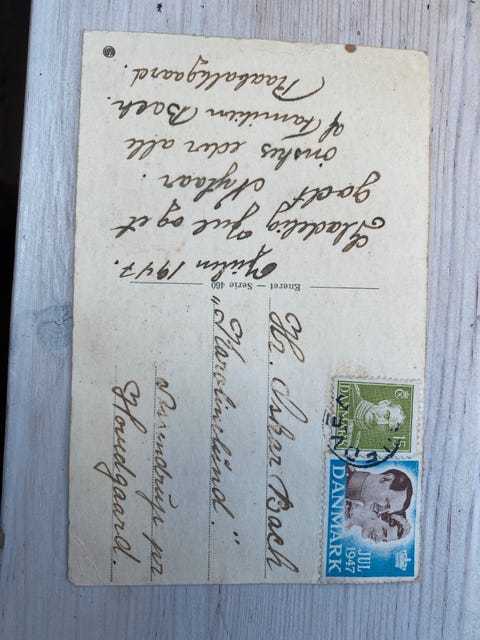 Julen 1947.
Glædelig Jul og et
godt Nytaar.
ønskes eder alle
af familien Bach.
Eneret — Serie 460
Hr. Bach
"Karolinelund."
pr.
Hovedgaard.
DANMARK
15
DANMARK
JUL
1947